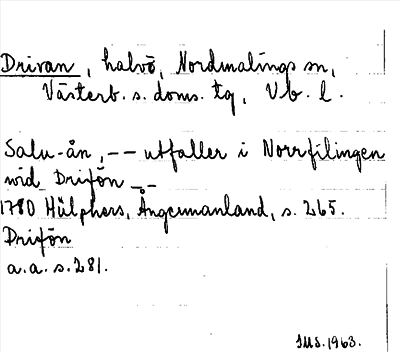 Drivan, halvö, Nordmalings sn,
Västerb. s. doms. tg, Vb. l.
Salu-ån, -- utfaller i Norrfilingen
wid Drifön --
1780 Hülphers, Ångermanland, s. 265.
Drifön
a.a. s. 281.
1963.